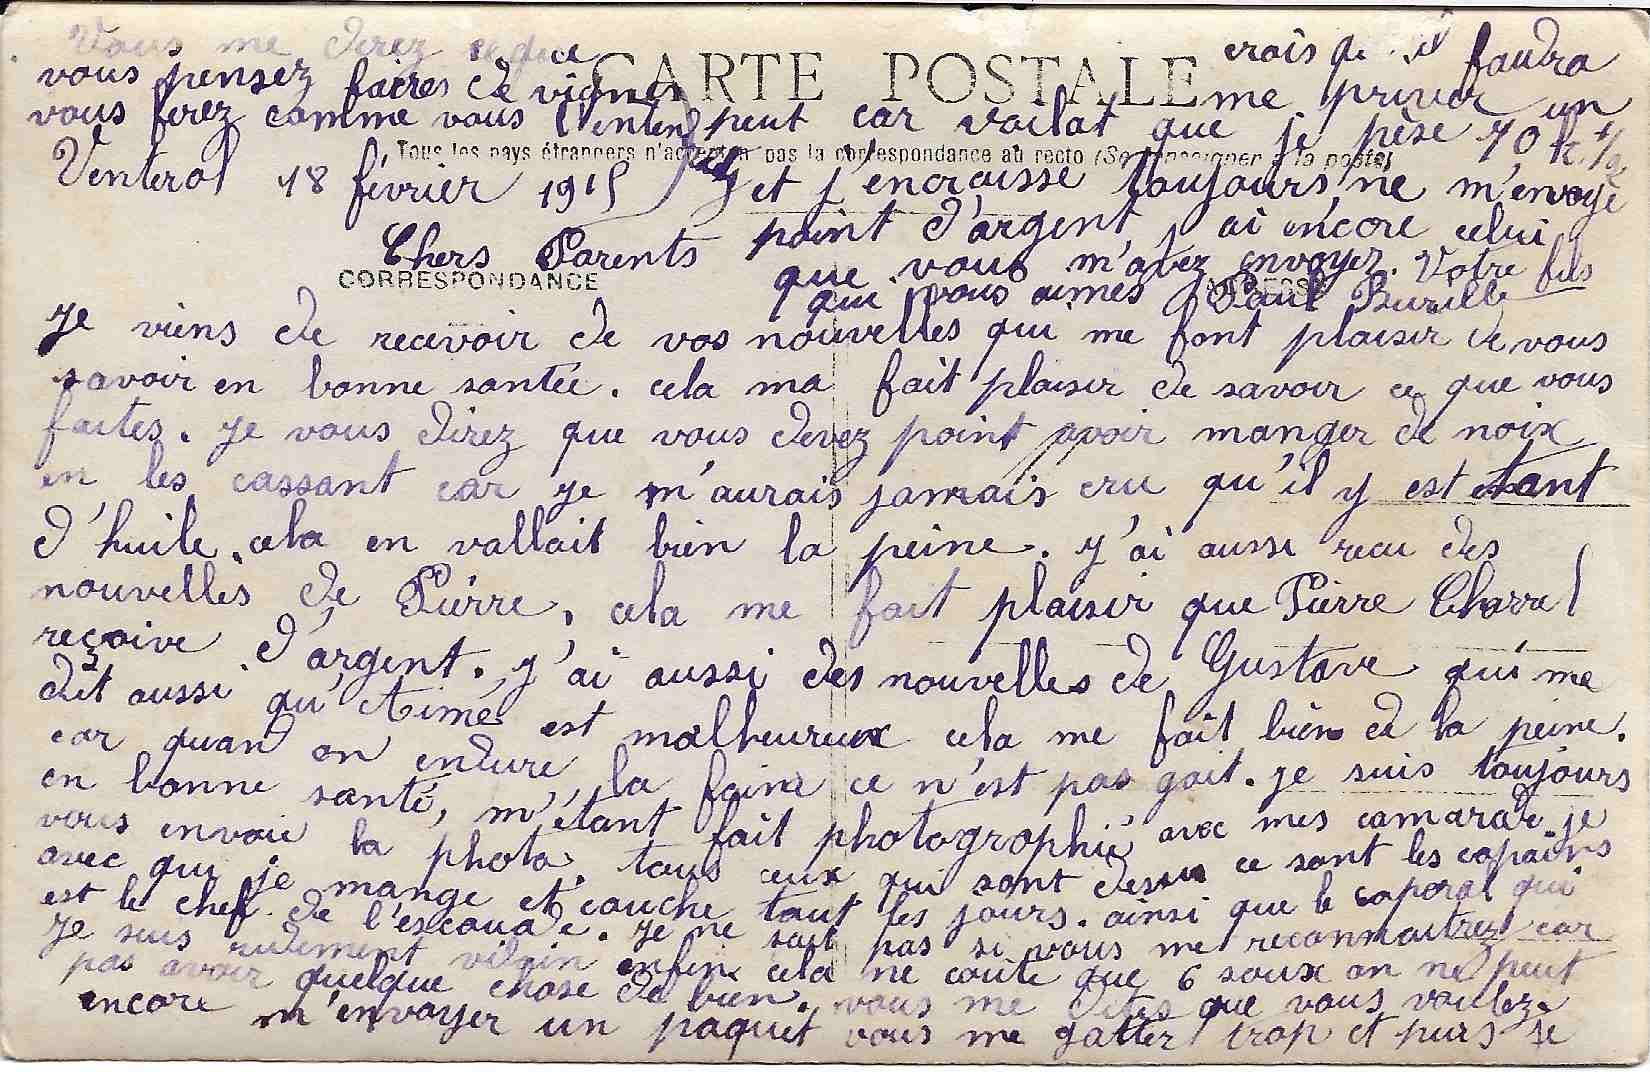 Vous me direz ce que
vous pensez faires de vignes
vous ferez comme vous l'entendez
CARTE POSTALE
Tous les pays étrangers n'acceptent pas la correspondance au recto (Se renseigner à la poste)
Venterol 18 février 1915
Chers Parents
CORRESPONDANCE
Je viens de recevoir de vos nouvelles qui me font plaisir de vous
savoir en bonne santée. cela ma fait plaisir de savoir ce que vous
faites. je vous direz que vous devez point avoir manger de noix
en les cassant car je m'aurais jamais cru qu'il y est tant
d'huile. cela en vallait bien la peine. j'ai aussi recu des
nouvelles de Pierre. cela me fait plaisir que Pierre Charrel
reçoive d'argent. j'ai aussi des nouvelles de Gustave qui me
dit aussi qu'Aimé est malheureux cela me fait bien de la peine.
car quand on endure la faim ce n'est pas gait. je suis toujours
en bonne santé, m'étant fait photographié avec mes camarades je
vous envoie la photo. tous ceux qui sont dessus ce sont les copains
avec qui je mange et couche tout les jours. ainsi que le caporal qui
est le chef de l'escouade. je ne sait pas si vous me reconnaitrez car
je suis rudement vilain enfin cela ne coute que 6 soux on ne peut
pas avoir quelque chose de bien. vous me dites que vous voulez
encore m'envoyer un paquet vous me gatter trop et puis je
crois qu'il faudra
me priver un
peut car voilat que je pèse 70 k. 1/2
et j'encraisse toujours, ne m'envoye
point d'argent j'ai encore celui
que vous m'avez envoyez. Votre fils
qui vous aimes Paul